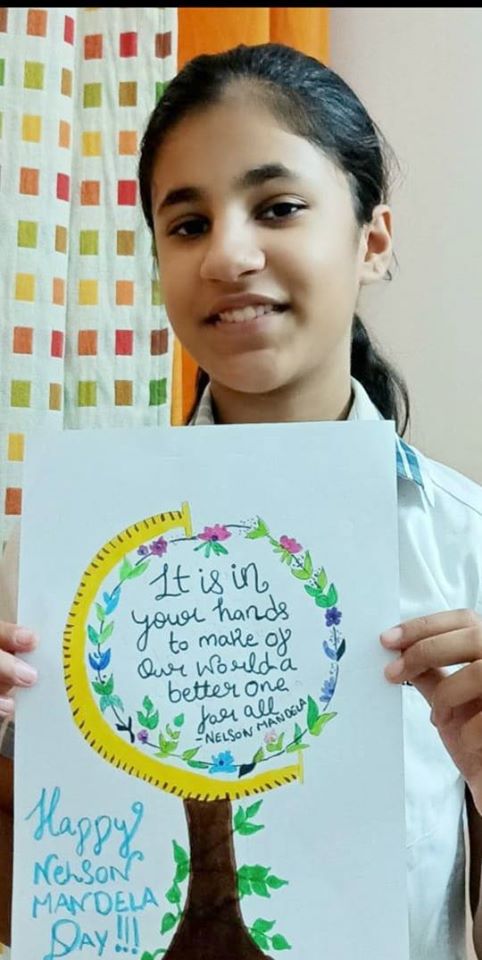 It is in
your hands
to make of
Our World a
better one
for all
-NELSON MANDELA
Happy
NELSON
MANDELA
DAY!!!